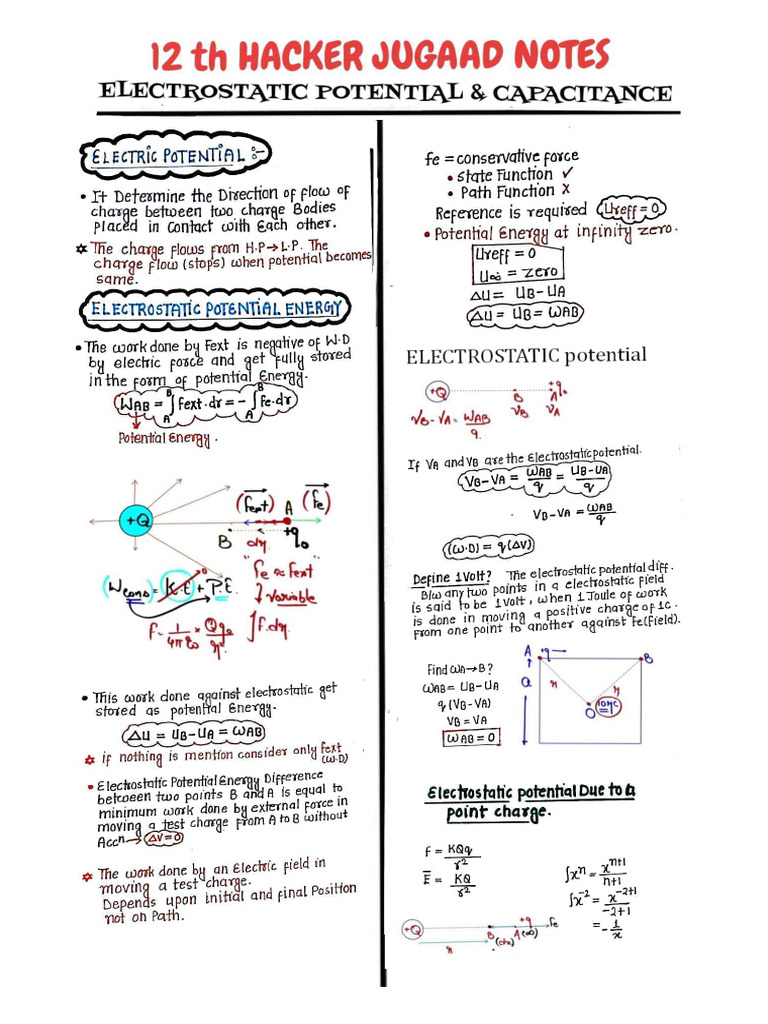 12 th HACKER JUGAAD NOTES
ELECTROSTATIC POTENTIAL & CAPACITANCE
ELECTRIC POTENTIAL :-
• It Determine the Direction of flow of
charge between two charge Bodies
placed in Contact with Each other.
✡ The charge flows from H.P→L.P. The
charge flow (stops) when potential becomes
same.
ELECTROSTATIC POTENTIAL ENERGY
• The work done by Fext is negative of W.D
by electric force and get fully stored
in the form of potential Energy.
WAB = ∫ᴬᴮ Fext·dr = - ∫ᴬᴮ Fe·dr
Potential Energy.
(Fext) A (Fe)
+Q
B dr +q₀
"Fe ≈ Fext"
(Wcons) = K.E + P.E 0
↓ variable
f = 1/4πε₀ × Qq₀/r² ∫f.dr
• This work done against electrostatic get
stored as potential Energy.
ΔU = UB-UA = WAB
✡ if nothing is mention consider only fext
(W.D)
• Electrostatic Potential Energy Difference
between two points B and A is equal to
minimum work done by external force in
moving a test charge from A to B without
Accn → ΔV=0
✡ The work done by an Electric field in
moving a test charge.
Depends upon initial and final Position
not on Path.
fe = conservative force
• State Function ✓
• Path Function X
Reference is required Ureff = 0
• Potential Energy at infinity zero.
Ureff = 0
U∞ = zero
ΔU = UB-UA
ΔU = UB = WAB
ELECTROSTATIC potential
+Q B A +q₀
VB VA
VB-VA = WAB/q
If VA and VB are the Electrostatic potential.
VB-VA = WAB/q = UB-UA/q
VB-VA = WAB/q
(W.D) = q(ΔV)
Define 1Volt? The electrostatic potential diff.
B/w any two points in a electrostatic field
is said to be 1 Volt, when 1 Joule of work
is done in moving a positive charge of 1C.
from one point to another against Fe(field).
A q B
Find WA→B?
WAB = UB-UA
q(VB-VA)
VB = VA
WAB = 0
a r r
O 10μC
Electrostatic potential Due to a
point charge.
f = KQq/r²
E̅ = KQ/r²
∫xⁿ = xⁿ⁺¹/n+1
∫x⁻² = x⁻²⁺¹/-2+1
= -1/x
+Q B A(∞) +q Fe
r (dx)